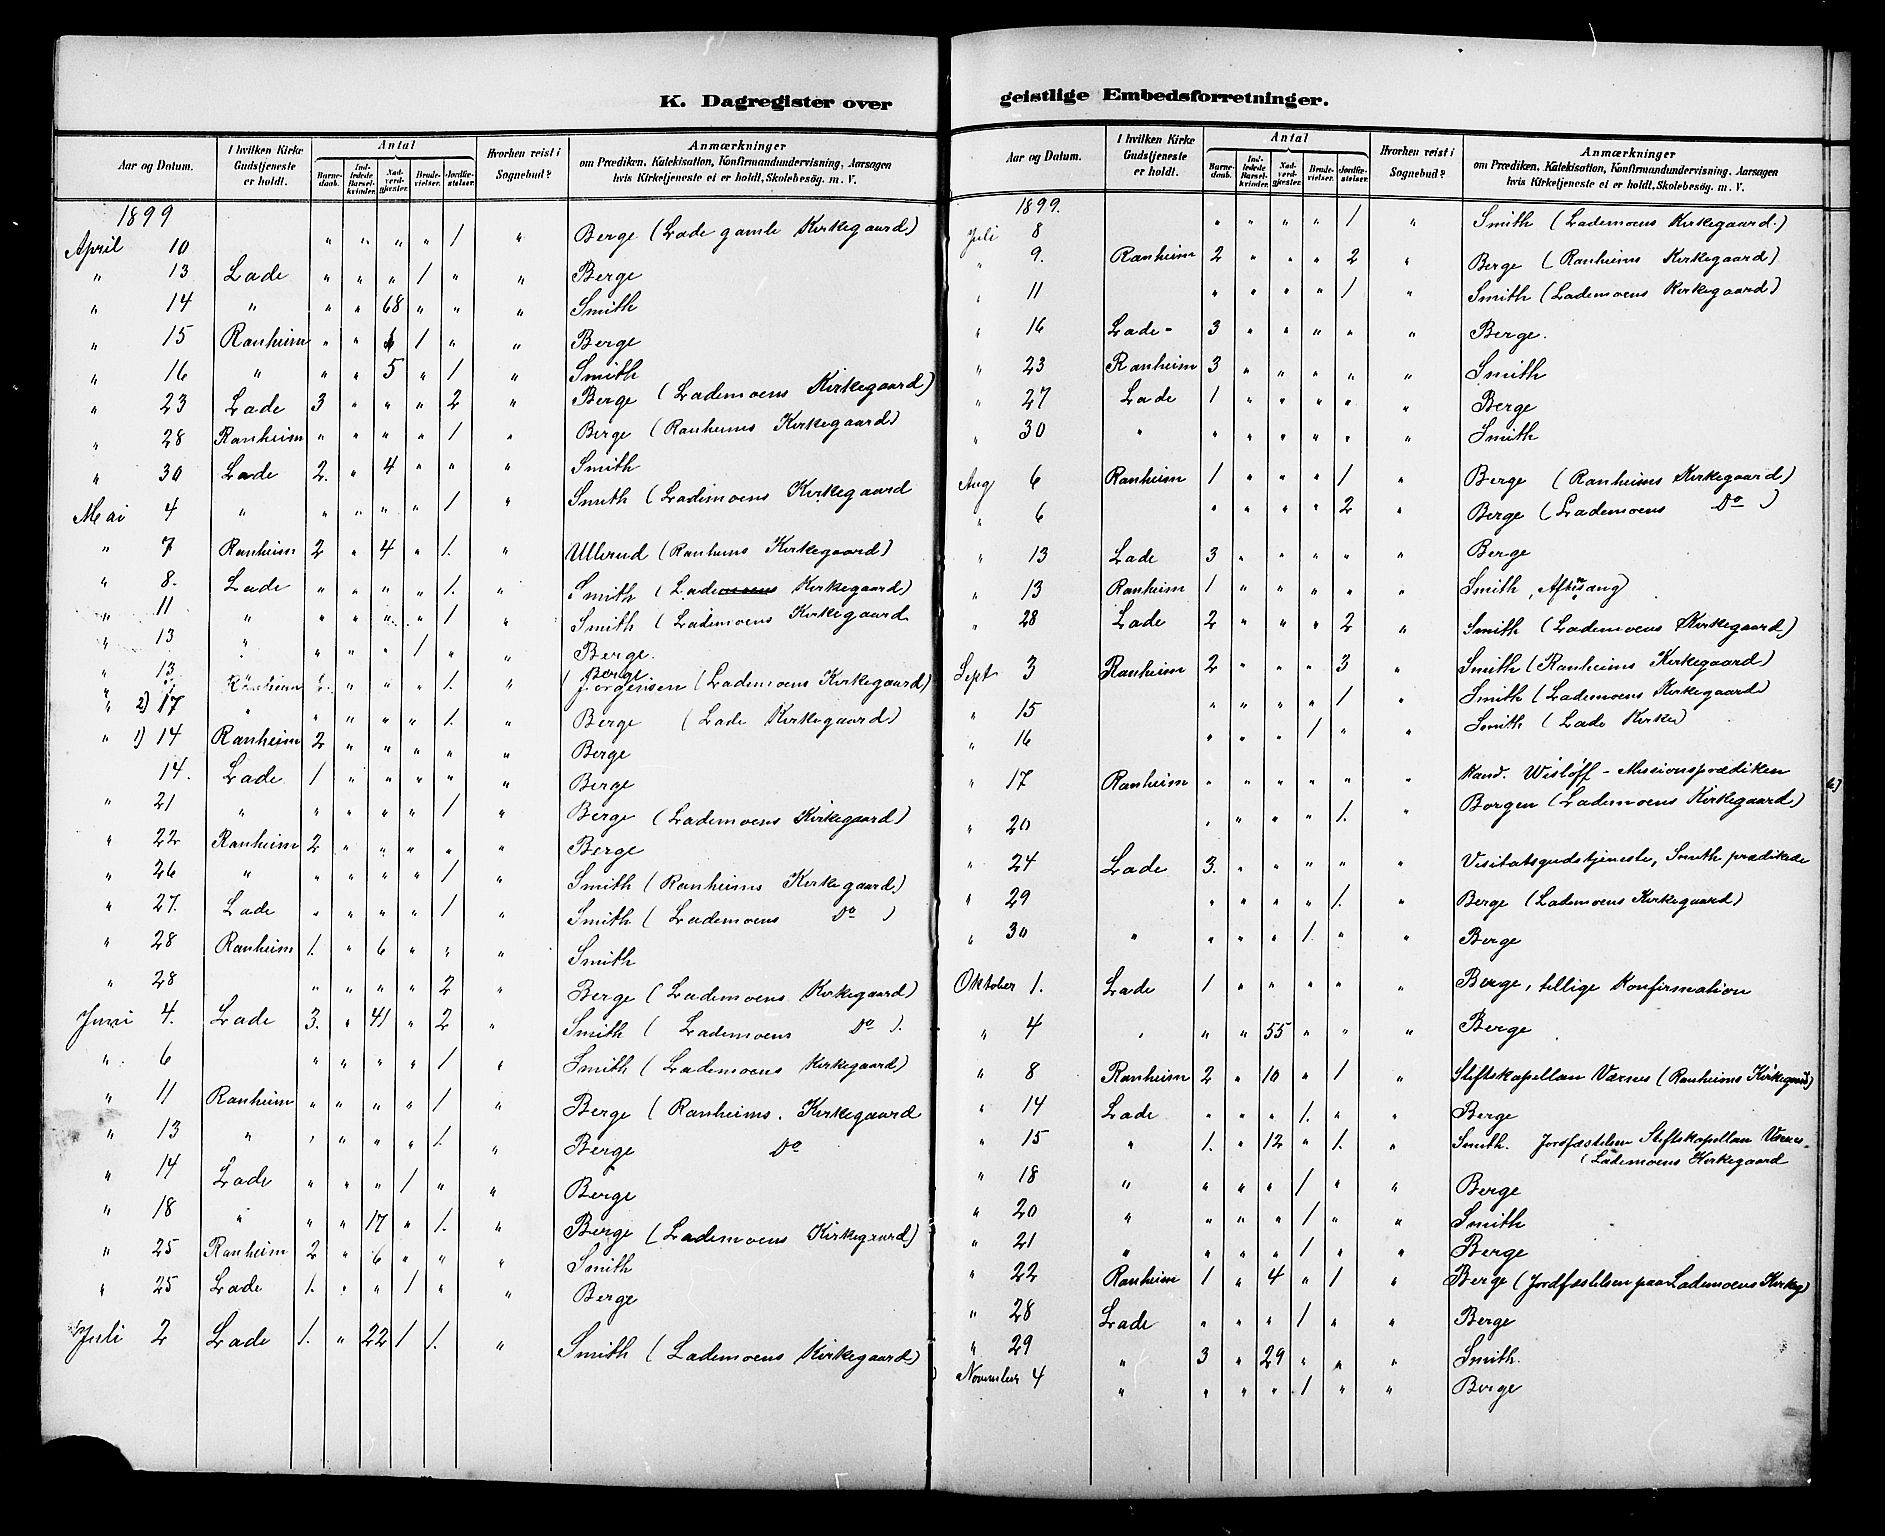 K. Dagregister over
Aar og Datum. I hvilken Kirke Gudstjeneste er holdt. Antal Barnedaab. Indledede Barselkvinder. Nadverdgjester. Brudevielser. Jordfæstelser. Hvorhen reist i Sognebud? Anmærkninger om Prædiken, Katekisation, Konfirmandundervisning, Aarsagen hvis Kirketjeneste ei er holdt, Skolebesøg. m. V.
1899
April 10 " " " " 1 " Berge (Lade gamle Kirkegaard)
" 13 Lade " " " 1 " " Berge
" 14 " " " 68 " " " Smith
" 15 Ranheim " " 1 " " Berge
" 16 " " " 5 " 1 " Smith
" 23 Lade 3 " " " 2 " Berge (Lademoens Kirkegaard)
" 28 Ranheim " " " " 1 " Berge (Ranheims Kirkegaard)
" 30 Lade 2. " 4 " " " Smith
Mai 4 " " " " " 1 " Smith (Lademoens Kirkegaard
" 7 Ranheim 2 " 4 " 1. " Ullerud (Ranheims Kirkegaard)
" 8. Lade " " " " 1. " Smith (Lademoens Kirkegaard)
" 11 " " " " " 1 " Smith (Lademoens Kirkegaard
" 13 " " " " 1 " " Berge.
" 13 Ranheim " " " 1. " Berge Jørgensen (Lademoens Kirkegaard)
" 2) 17 " " " " " 1. " Berge (Lade Kirkegaard)
" 1) 14 Ranheim 2 " " " " " Berge
14. Lade 1 " " " " " Berge
" 21 " " " " " 1 " Berge (Lademoens Kirkegaard)
" 22 Ranheim 2 " " " " " Berge
" 26 " " " " " 1 " Smith (Ranheims Kirkegaard)
" 27. Lade " " " " 1 " Smith (Lademoens Do )
" 28 Ranheim 1. " 6 " " " Smith
" 28 " " " " 2 " Berge (Lademoens Kirkegaard)
Juni 4. Lade 3. " 41 " 2 " Smith ( Lademoens Do ).
" 6 " " " " 1 " Smith (Lademoens Kirkegaard)
" 11 Ranheim " " " " 1 " Berge (Ranheims. Kirkegaard
" 13 " " " " " 1. " Berge Do
" 14 Lade " " " 1 " " Berge
" 18 " " " 17 " 1. " Berge (Lademoens Kirkegaard)
" 25 Ranheim 2 " 6 " " " Smith
" 25 Lade 1. " " 1 " " Berge
Juli 2 Lade 1. " 22 1 1. " Smith (Lademoens Kirkegaard)
geistlige Embedsforretninger.
Aar og Datum. I hvilken Kirke Gudstjeneste er holdt. Antal Barnedaab. Indledede Barselkvinder. Nadverdgjester. Brudevielser. Jordfæstelser. Hvorhen reist i Sognebud? Anmærkninger om Prædiken, Katekisation, Konfirmandundervisning, Aarsagen hvis Kirketjeneste ei er holdt, Skolebesøg. m. V.
1899.
Juli 8 " " " " 1 " Smith (Lademoens Kirkegaard.)
" 9. Ranheim 2 " " " 2 " Berge (Ranheims Kirkegaard)
" 11 " " " " 1 " Smith (Lademoens Kirkegaard)
" 16 Lade - 3 " " " " " Berge.
" 23 Ranheim 3 " " " " " Smith
" 27 Lade 1 " " " " " Berge
" 30 " " " " " " " Smith
Aug 6 Ranheim 1 " " " 1 " Berge (Ranheims Kirkegaard)
" 6 " " " " 2 " Berge (Lademoens Do )
" 13 Lade 3 " " " " " Berge
" 13 Ranheim 1 " " " " " Smith, Aftensang)
" 28 Lade 2 " " " 2 " Smith (Lademoens Kirkegaard)
Sept 3 Ranheim 2 " " " 3 " Smith (Ranheims Kirkegaard)
" 15 " " " " 1 " Smith (Lademoens Kirkegaard)
" 16 " " " 1 " " Smith (Lade Kirke)
" 17 Ranheim " " " " " " Kand. Wisløff - Missionsprædiken
" 20 " " " " 1. " Borgen (Lademoens Kirkegaard)
" 24 Lade 3. " " " " " Visitatsgudstjeneste, Smith prædikede
" 29 " " " " 1. " Berge (Lademoens Kirkegaard)
" 30 " " " " 1. " " Berge
Oktober 1. Lade 1 " " " " " Berge, tillige Konfirmation
" 4 " " " 55 " " " Berge
" 8 Ranheim 2 " 10 " 1 " Stiftskapellan Værnes (Ranheims Kirkegaard)
" 14 Lade " " " 1. " " Berge
" 15 " 1. " 12 " 1. " Smith. Jordfæstelsen Stiftskapellan Værnes -
(Lademoens Kirkegaard
" 18 " " " " 1 " " Berge
" 20 " " " " 1 " " Smith
" 21 " " " " 1 " " Berge
" 22 Ranheim 1 " 4 " 1 " Berge (Jordfæstelsen paa Lademoens Kirkeg)
" 28 Lade " " " 1 " " Berge
" 29 " 3 " 29 " " " Smith.
November 4 " " " " 1 " " Berge